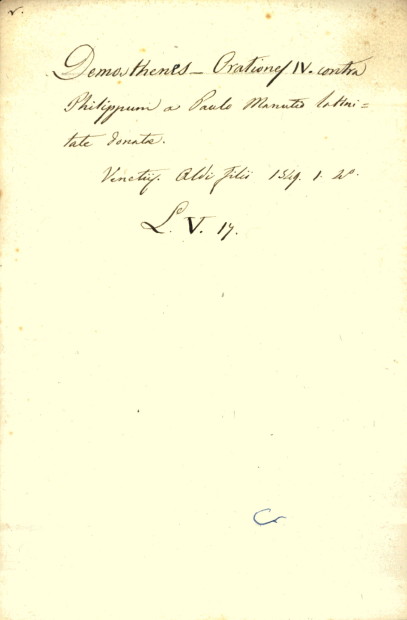 v.
Demosthenes — Orationes IV. contra
Philippum a Paulo Manutio latini=
tate donatæ.
Venetijs. Aldi filii 1549. 1. 4°.
L. V. 17.